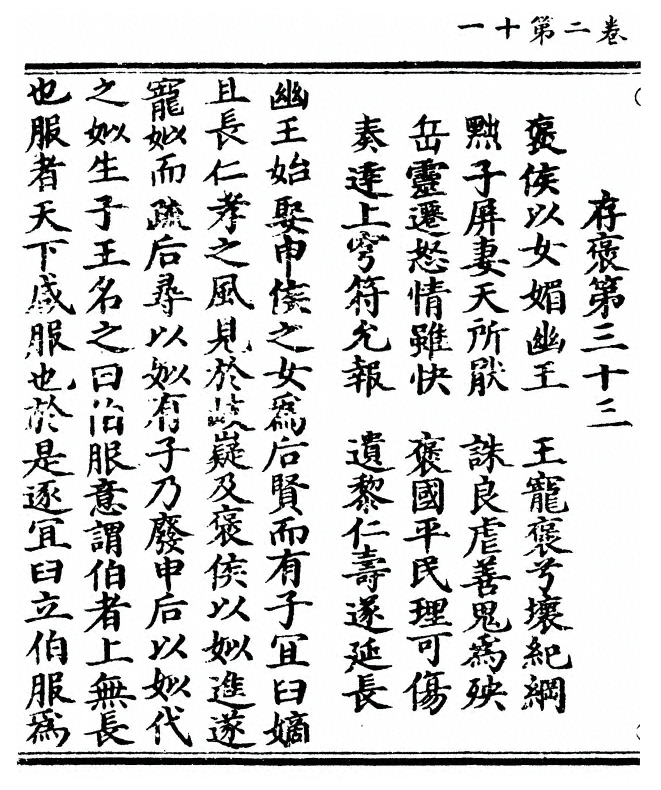 卷二第十一
存褒第三十三
褒侯以女媚幽王　王寵褒兮壞紀綱
黜子屏妻天所厭　誅良虐善鬼為殃
岳靈遷怒情雖快　褒國平民理可傷
奏達上穹符允報　遺黎仁壽遂延長
幽王始娶申侯之女爲后賢而有子冝臼嫡
且長仁孝之風見於岐嶷及褒侯以姒進遂
寵姒而疏后尋以姒有子乃廢申后以姒代
之姒生子王名之曰伯服意謂伯者上無長
也服者天下咸服也於是逐冝臼立伯服爲